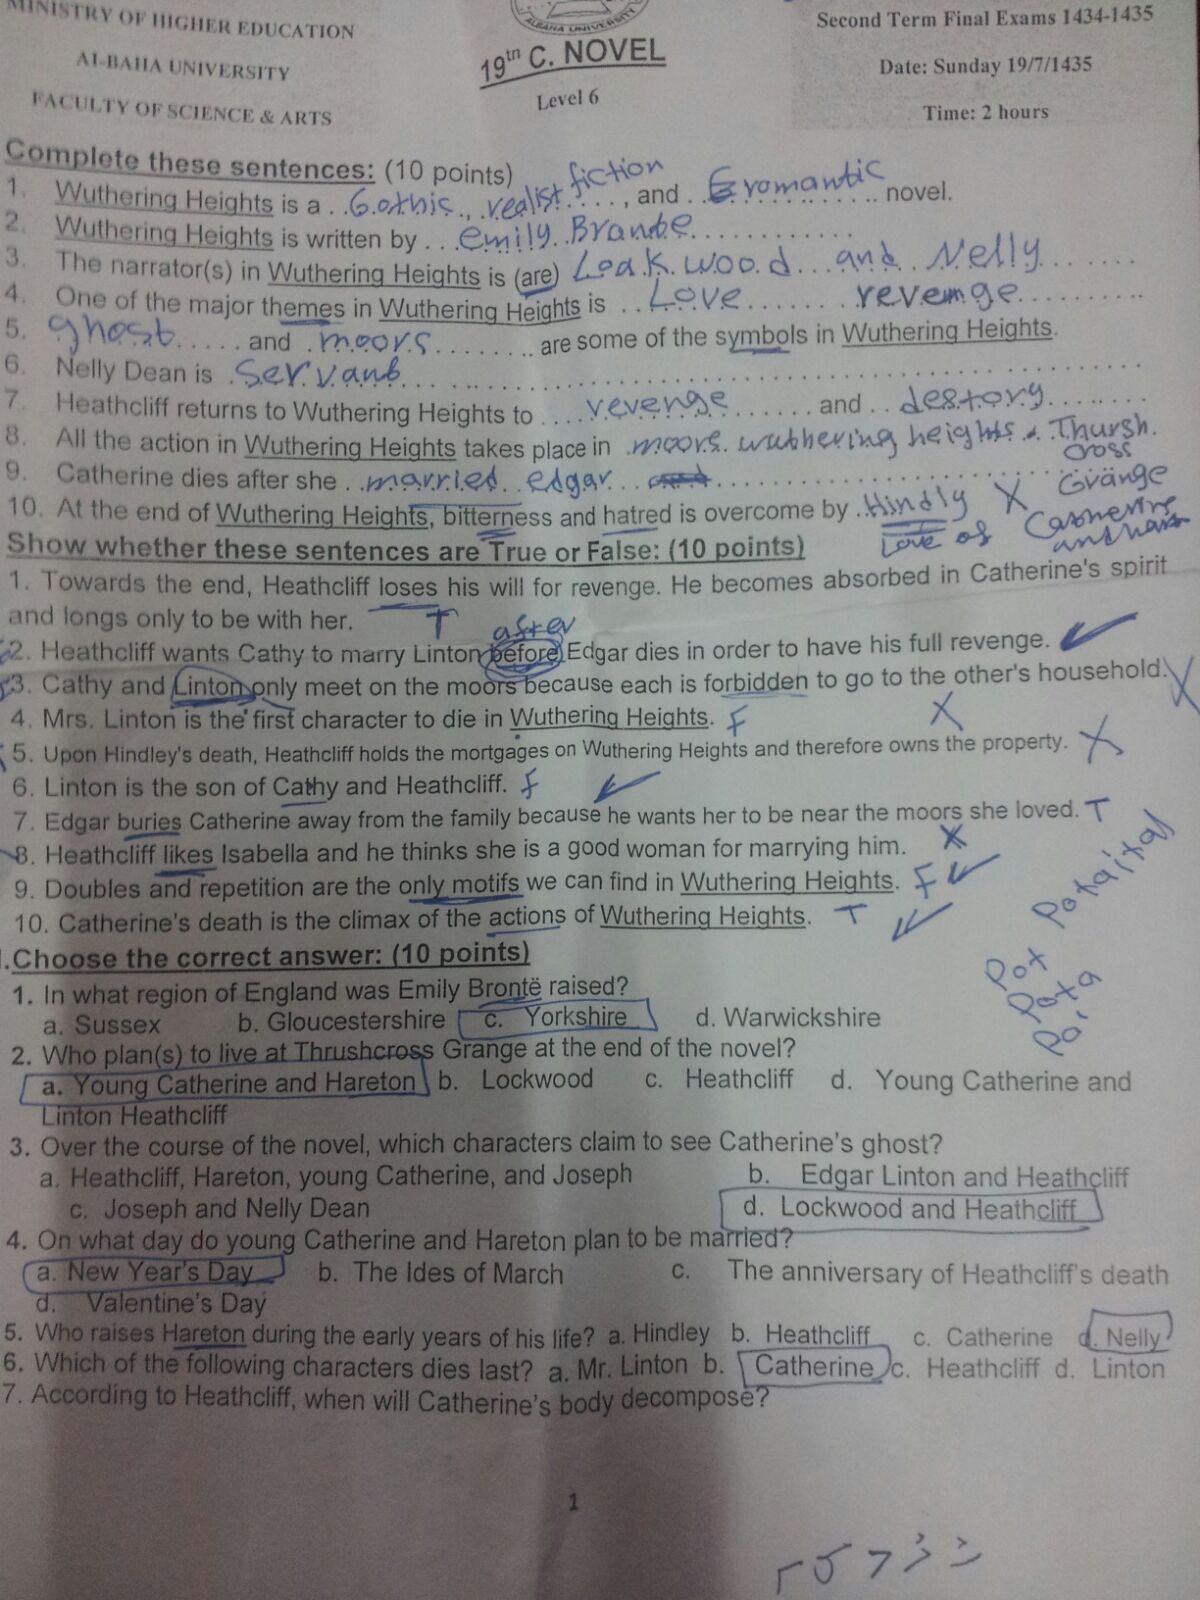 MINISTRY OF HIGHER EDUCATION
Al-BAHA UNIVERSITY
FACULTY OF SCIENCE & ARTS
ALBAHA UNIVERSITY
19th C. NOVEL
Level 6
Second Term Final Exams 1434-1435
Date: Sunday 19/7/1435
Time: 2 hours
Complete these sentences: (10 points)
1. Wuthering Heights is a ..Gothic., realist fiction....., and ..romantic....... novel.
2. Wuthering Heights is written by ...emily..Brante............
3. The narrator(s) in Wuthering Heights is (are) Loakwood...and..Nelly.......
4. One of the major themes in Wuthering Heights is ..Love....... revenge..........
5. ghost..... and .moors........ are some of the symbols in Wuthering Heights.
6. Nelly Dean is .servant.......................
7. Heathcliff returns to Wuthering Heights to ....revenge....... and ..destory........
8. All the action in Wuthering Heights takes place in .moors. wuthering heights. Thursh. cross Grange
9. Catherine dies after she ..married..edgar...............
10. At the end of Wuthering Heights, bitterness and hatred is overcome by .Hindly X
Love of Catherine
Show whether these sentences are True or False: (10 points)
1. Towards the end, Heathcliff loses his will for revenge. He becomes absorbed in Catherine's spirit
and longs only to be with her. T
after
2. Heathcliff wants Cathy to marry Linton before Edgar dies in order to have his full revenge. ✓
3. Cathy and Linton only meet on the moors because each is forbidden to go to the other's household. X
4. Mrs. Linton is the first character to die in Wuthering Heights. F X
5. Upon Hindley's death, Heathcliff holds the mortgages on Wuthering Heights and therefore owns the property. X
6. Linton is the son of Cathy and Heathcliff. F ✓
7. Edgar buries Catherine away from the family because he wants her to be near the moors she loved. T
8. Heathcliff likes Isabella and he thinks she is a good woman for marrying him. X
9. Doubles and repetition are the only motifs we can find in Wuthering Heights. F ✓
10. Catherine's death is the climax of the actions of Wuthering Heights. T ✓
Pox
Poxa
.Choose the correct answer: (10 points)
1. In what region of England was Emily Brontë raised?
a. Sussex b. Gloucestershire c. Yorkshire d. Warwickshire
2. Who plan(s) to live at Thrushcross Grange at the end of the novel?
a. Young Catherine and Hareton b. Lockwood c. Heathcliff d. Young Catherine and
Linton Heathcliff
3. Over the course of the novel, which characters claim to see Catherine's ghost?
a. Heathcliff, Hareton, young Catherine, and Joseph b. Edgar Linton and Heathcliff
c. Joseph and Nelly Dean d. Lockwood and Heathcliff
4. On what day do young Catherine and Hareton plan to be married?
a. New Year's Day b. The Ides of March c. The anniversary of Heathcliff's death
d. Valentine's Day
5. Who raises Hareton during the early years of his life? a. Hindley b. Heathcliff c. Catherine d. Nelly
6. Which of the following characters dies last? a. Mr. Linton b. Catherine c. Heathcliff d. Linton
7. According to Heathcliff, when will Catherine's body decompose?
1